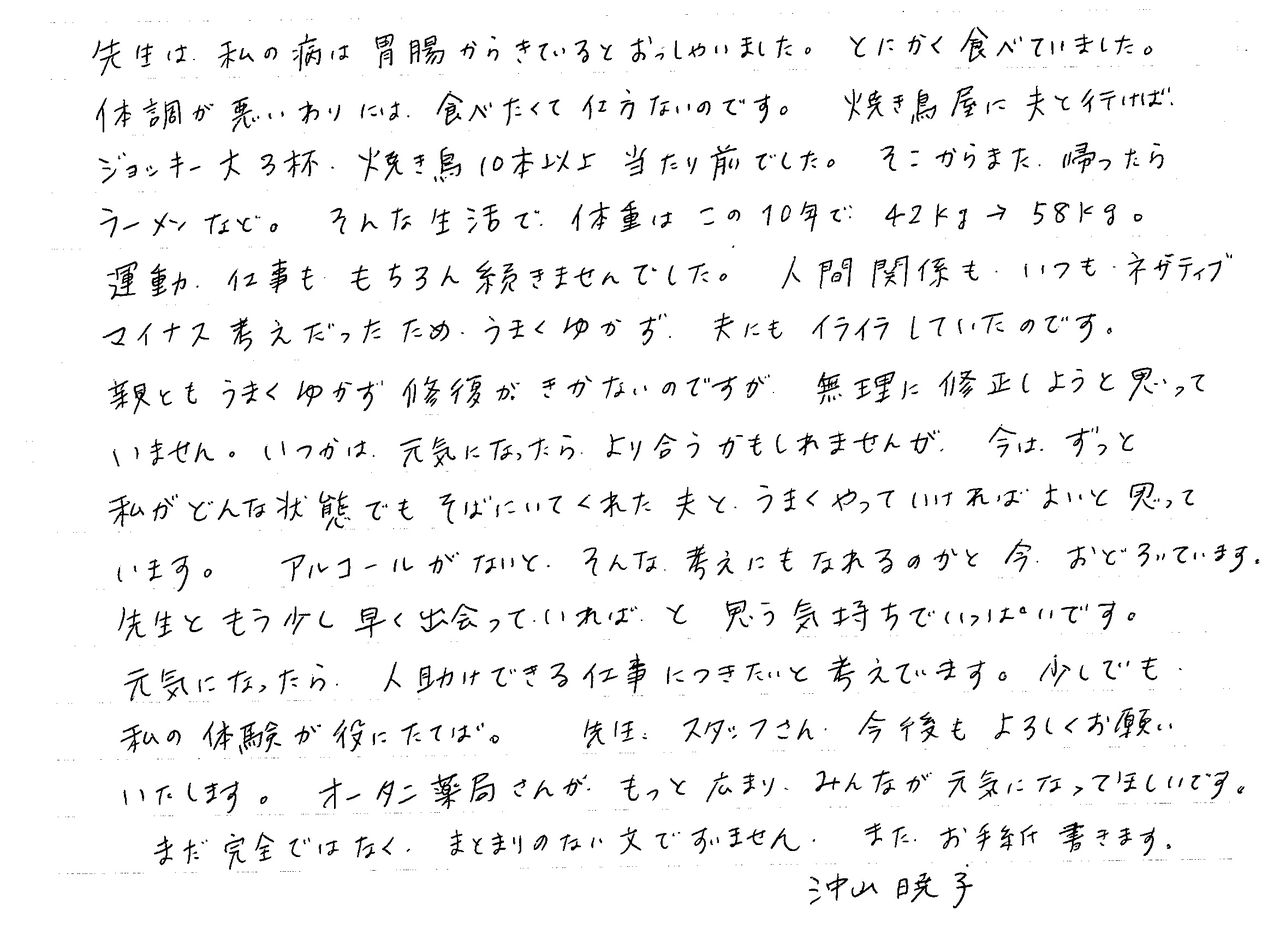 先生は、私の病は胃腸からきているとおっしゃいました。とにかく食べていました。
体調が悪いわりには、食べたくて仕方ないのです。焼き鳥屋に夫と行けば、
ジョッキー大3杯、焼き鳥10本以上当たり前でした。そこからまた、帰ったら
ラーメンなど。そんな生活で、体重はこの10年で、42kg→58kg。
運動、仕事も、もちろん続きませんでした。人間関係も、いつも、ネガティブ
マイナス考えだったため、うまくゆかず、夫にもイライラしていたのです。
親ともうまくゆかず修復がきかないのですが、無理に修正しようと思って
いません。いつかは、元気になったら、より合うかもしれませんが、今は、ずっと
私がどんな状態でもそばにいてくれた夫と、うまくやっていければよいと思って
います。アルコールがないと、そんな考えにもなれるのかと今、おどろいています。
先生ともう少し早く出会っていれば、と思う気持ちでいっぱいです。
元気になったら、人助けできる仕事につきたいと考えています。少しでも、
私の体験が役にたてば。先生、スタッフさん、今後もよろしくお願い
いたします。オータニ薬局さんが、もっと広まり、みんなが元気になってほしいです。
まだ完全ではなく、まとまりのない文ですいません。また、お手紙書きます。
沖山暁子